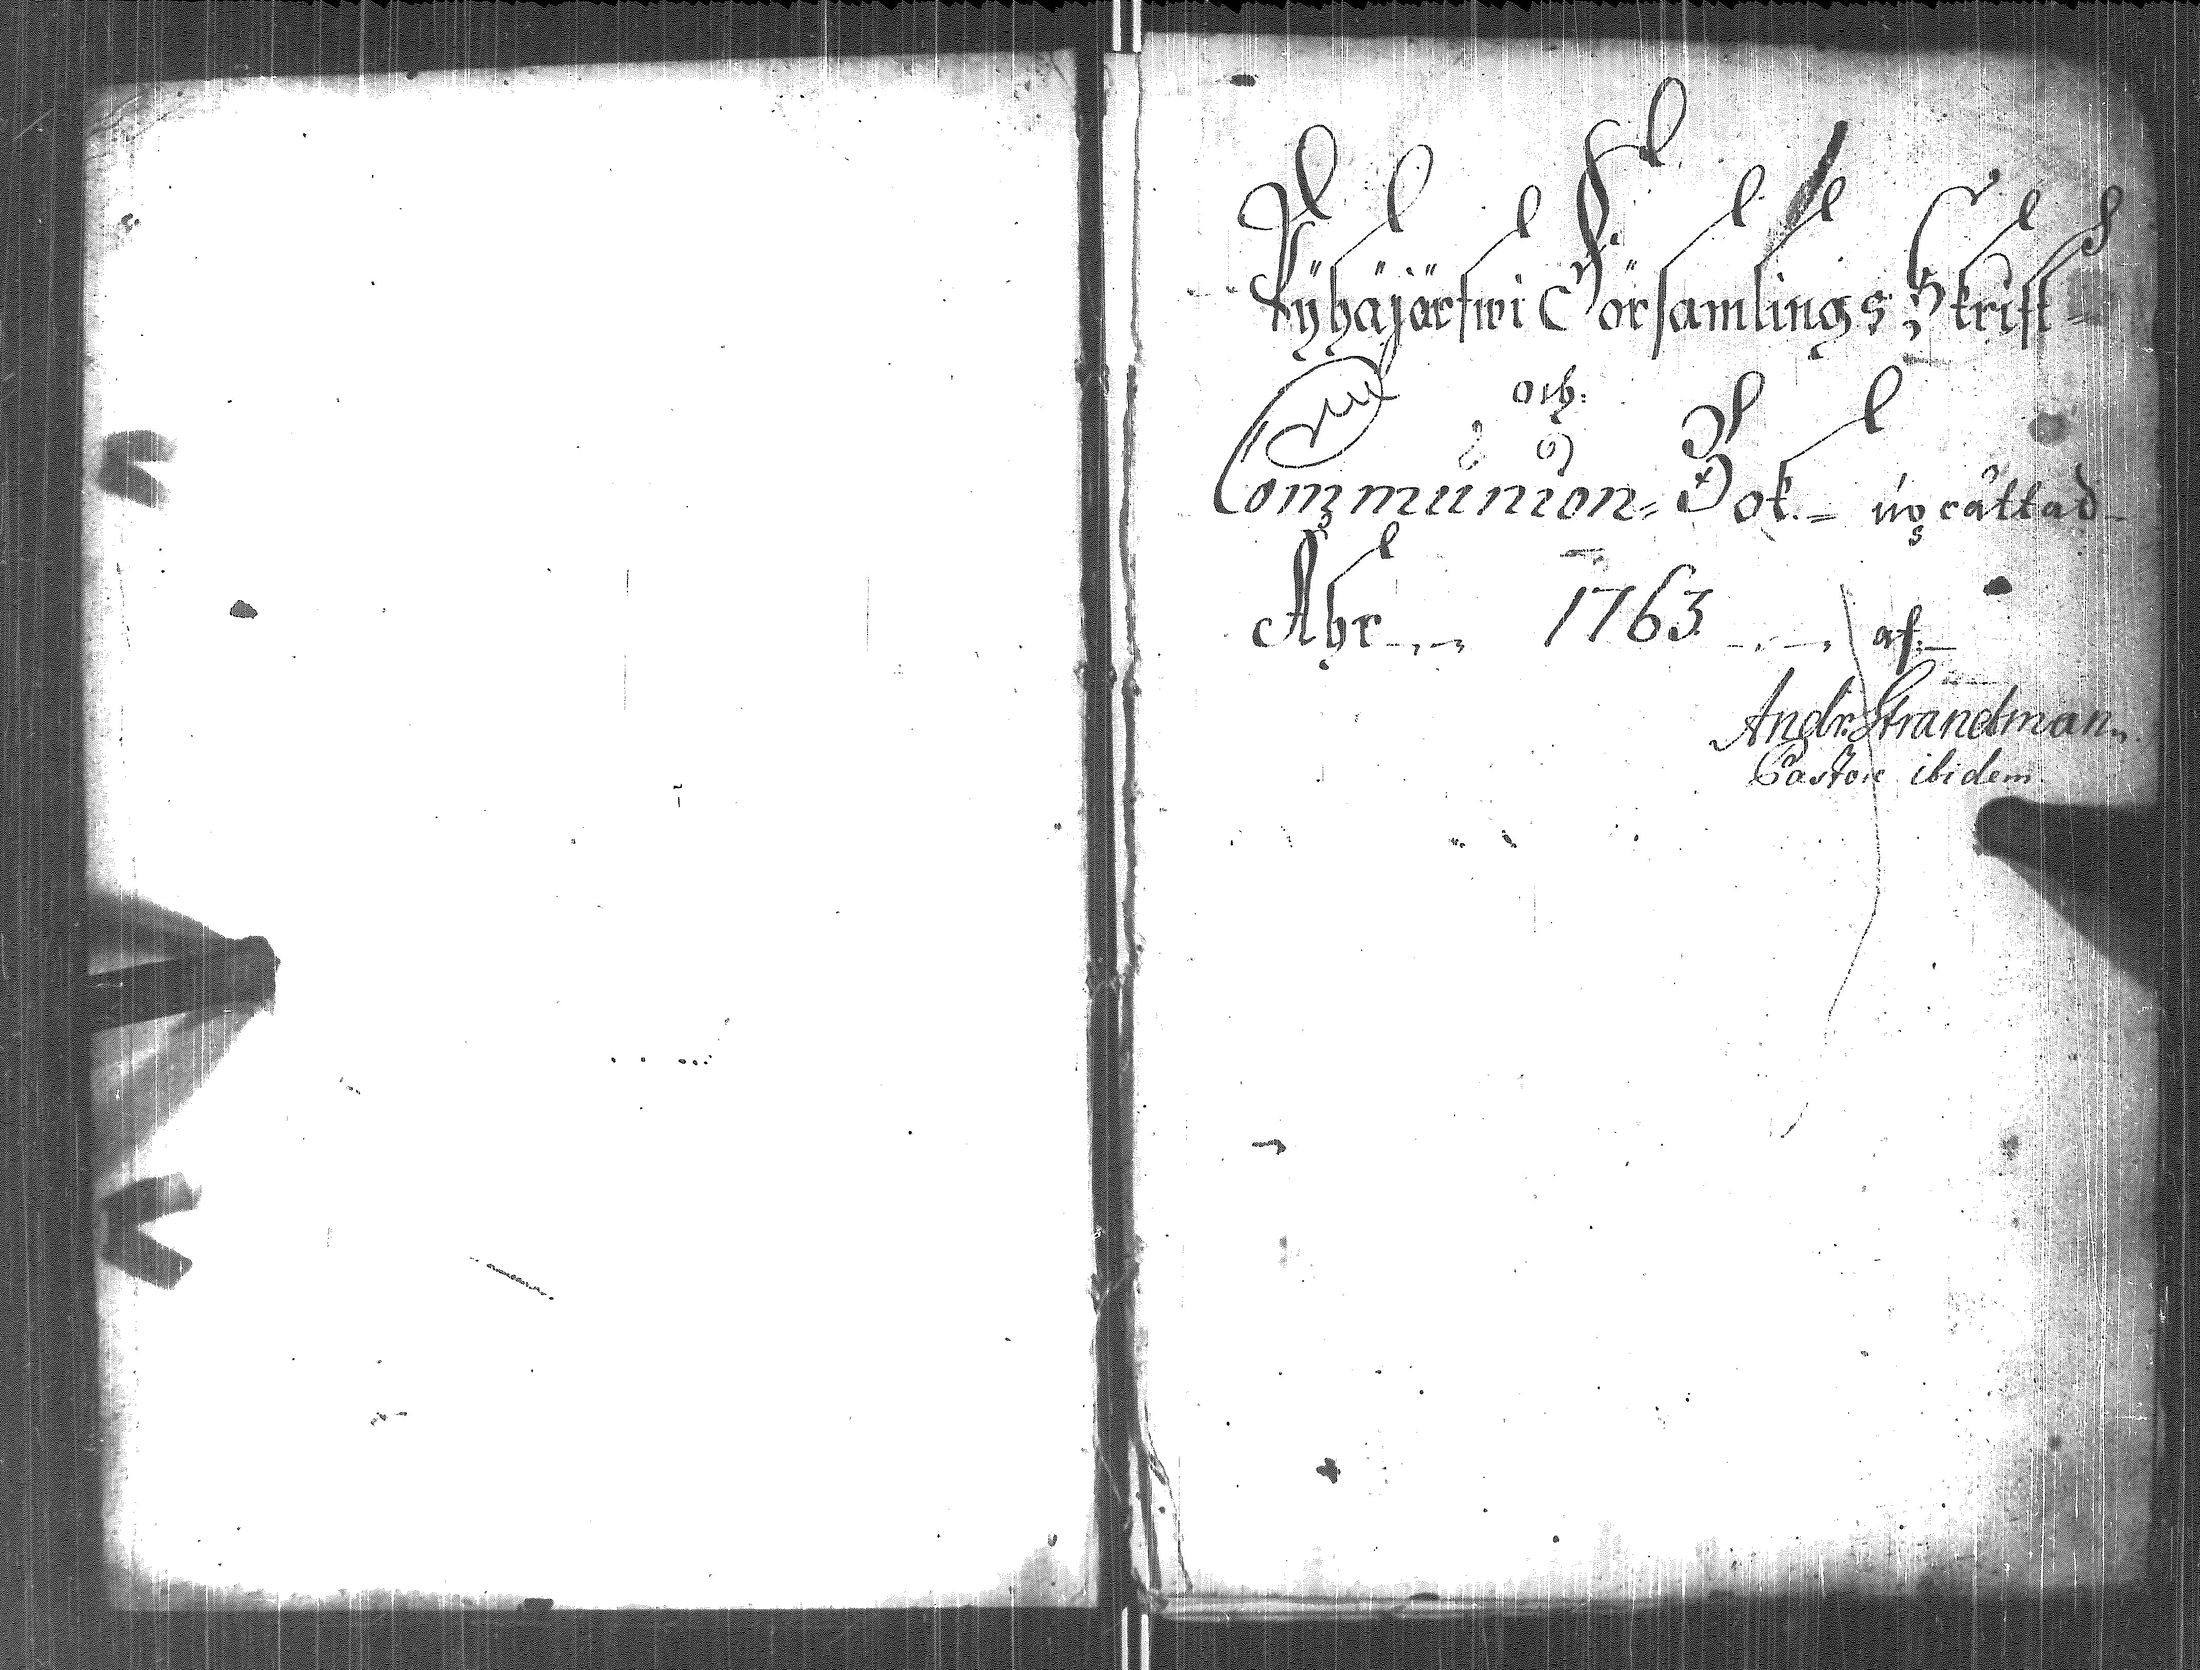 Pyhäjärfwi Församlings Skrift=
och
Communion= Bok= uprättad
Åhr 1763 af
Andr. Strandman.
Pastore ibidem.